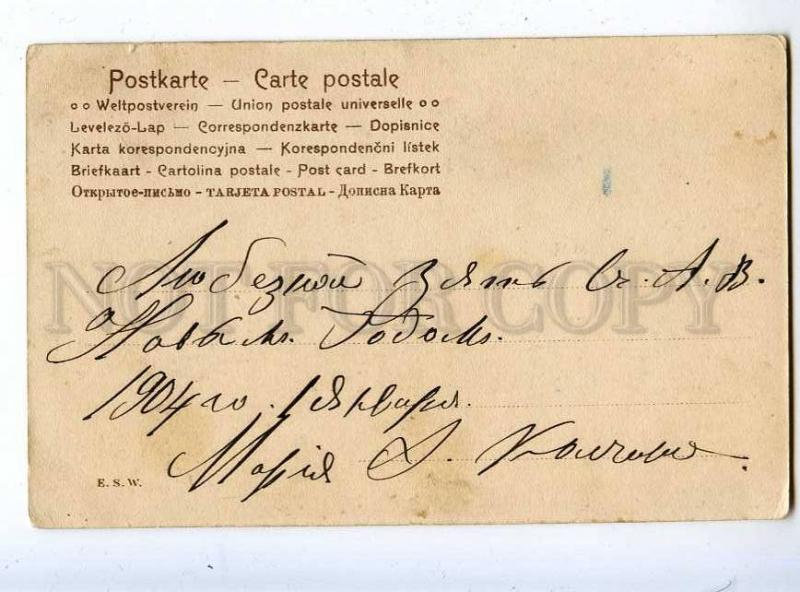 Postkarte — Carte postale
o o Weltpostverein — Union postale universelle o o
Levelező-Lap — Correspondenzkarte — Dopisnice
Karta korespondencyjna — Korespondenčni lístek
Briefkaart - Cartolina postale - Post card - Brefkort
Открытое-письмо - TARJETA POSTAL - Дописна Карта
NOT FOR COPY
Любезной Зять А. В.
Новым Годомъ.
1904 го. 1 января.
Марія А.
E. S. W.